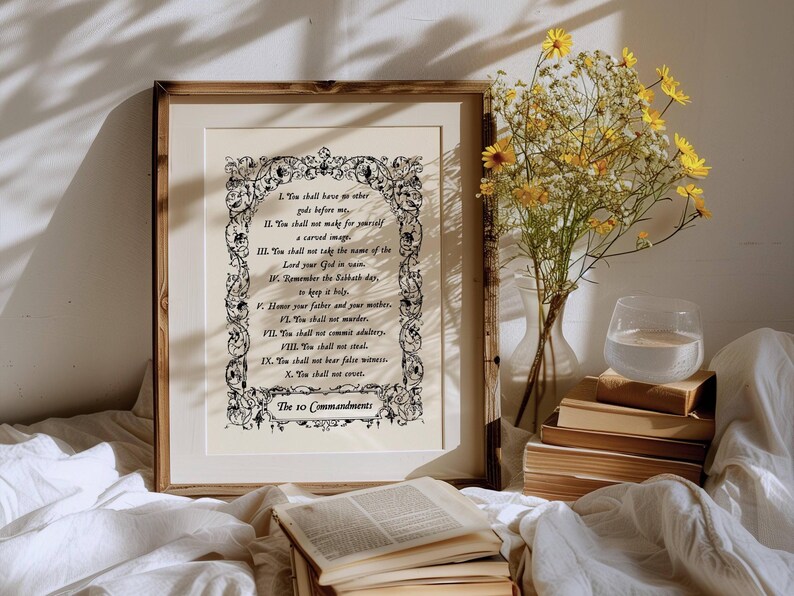 I. You shall have no other
gods before me.
II. You shall not make for yourself
a carved image.
III. You shall not take the name of the
Lord your God in vain.
IV. Remember the Sabbath day,
to keep it holy.
V. Honor your father and your mother.
VI. You shall not murder.
VII. You shall not commit adultery.
VIII. You shall not steal.
IX. You shall not bear false witness.
X. You shall not covet.
The 10 Commandments